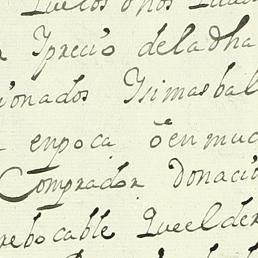 Y precio dela dha
ionados Y si mas bal
en poca ô en muc
Comprador Donacio
rebocable Que el der